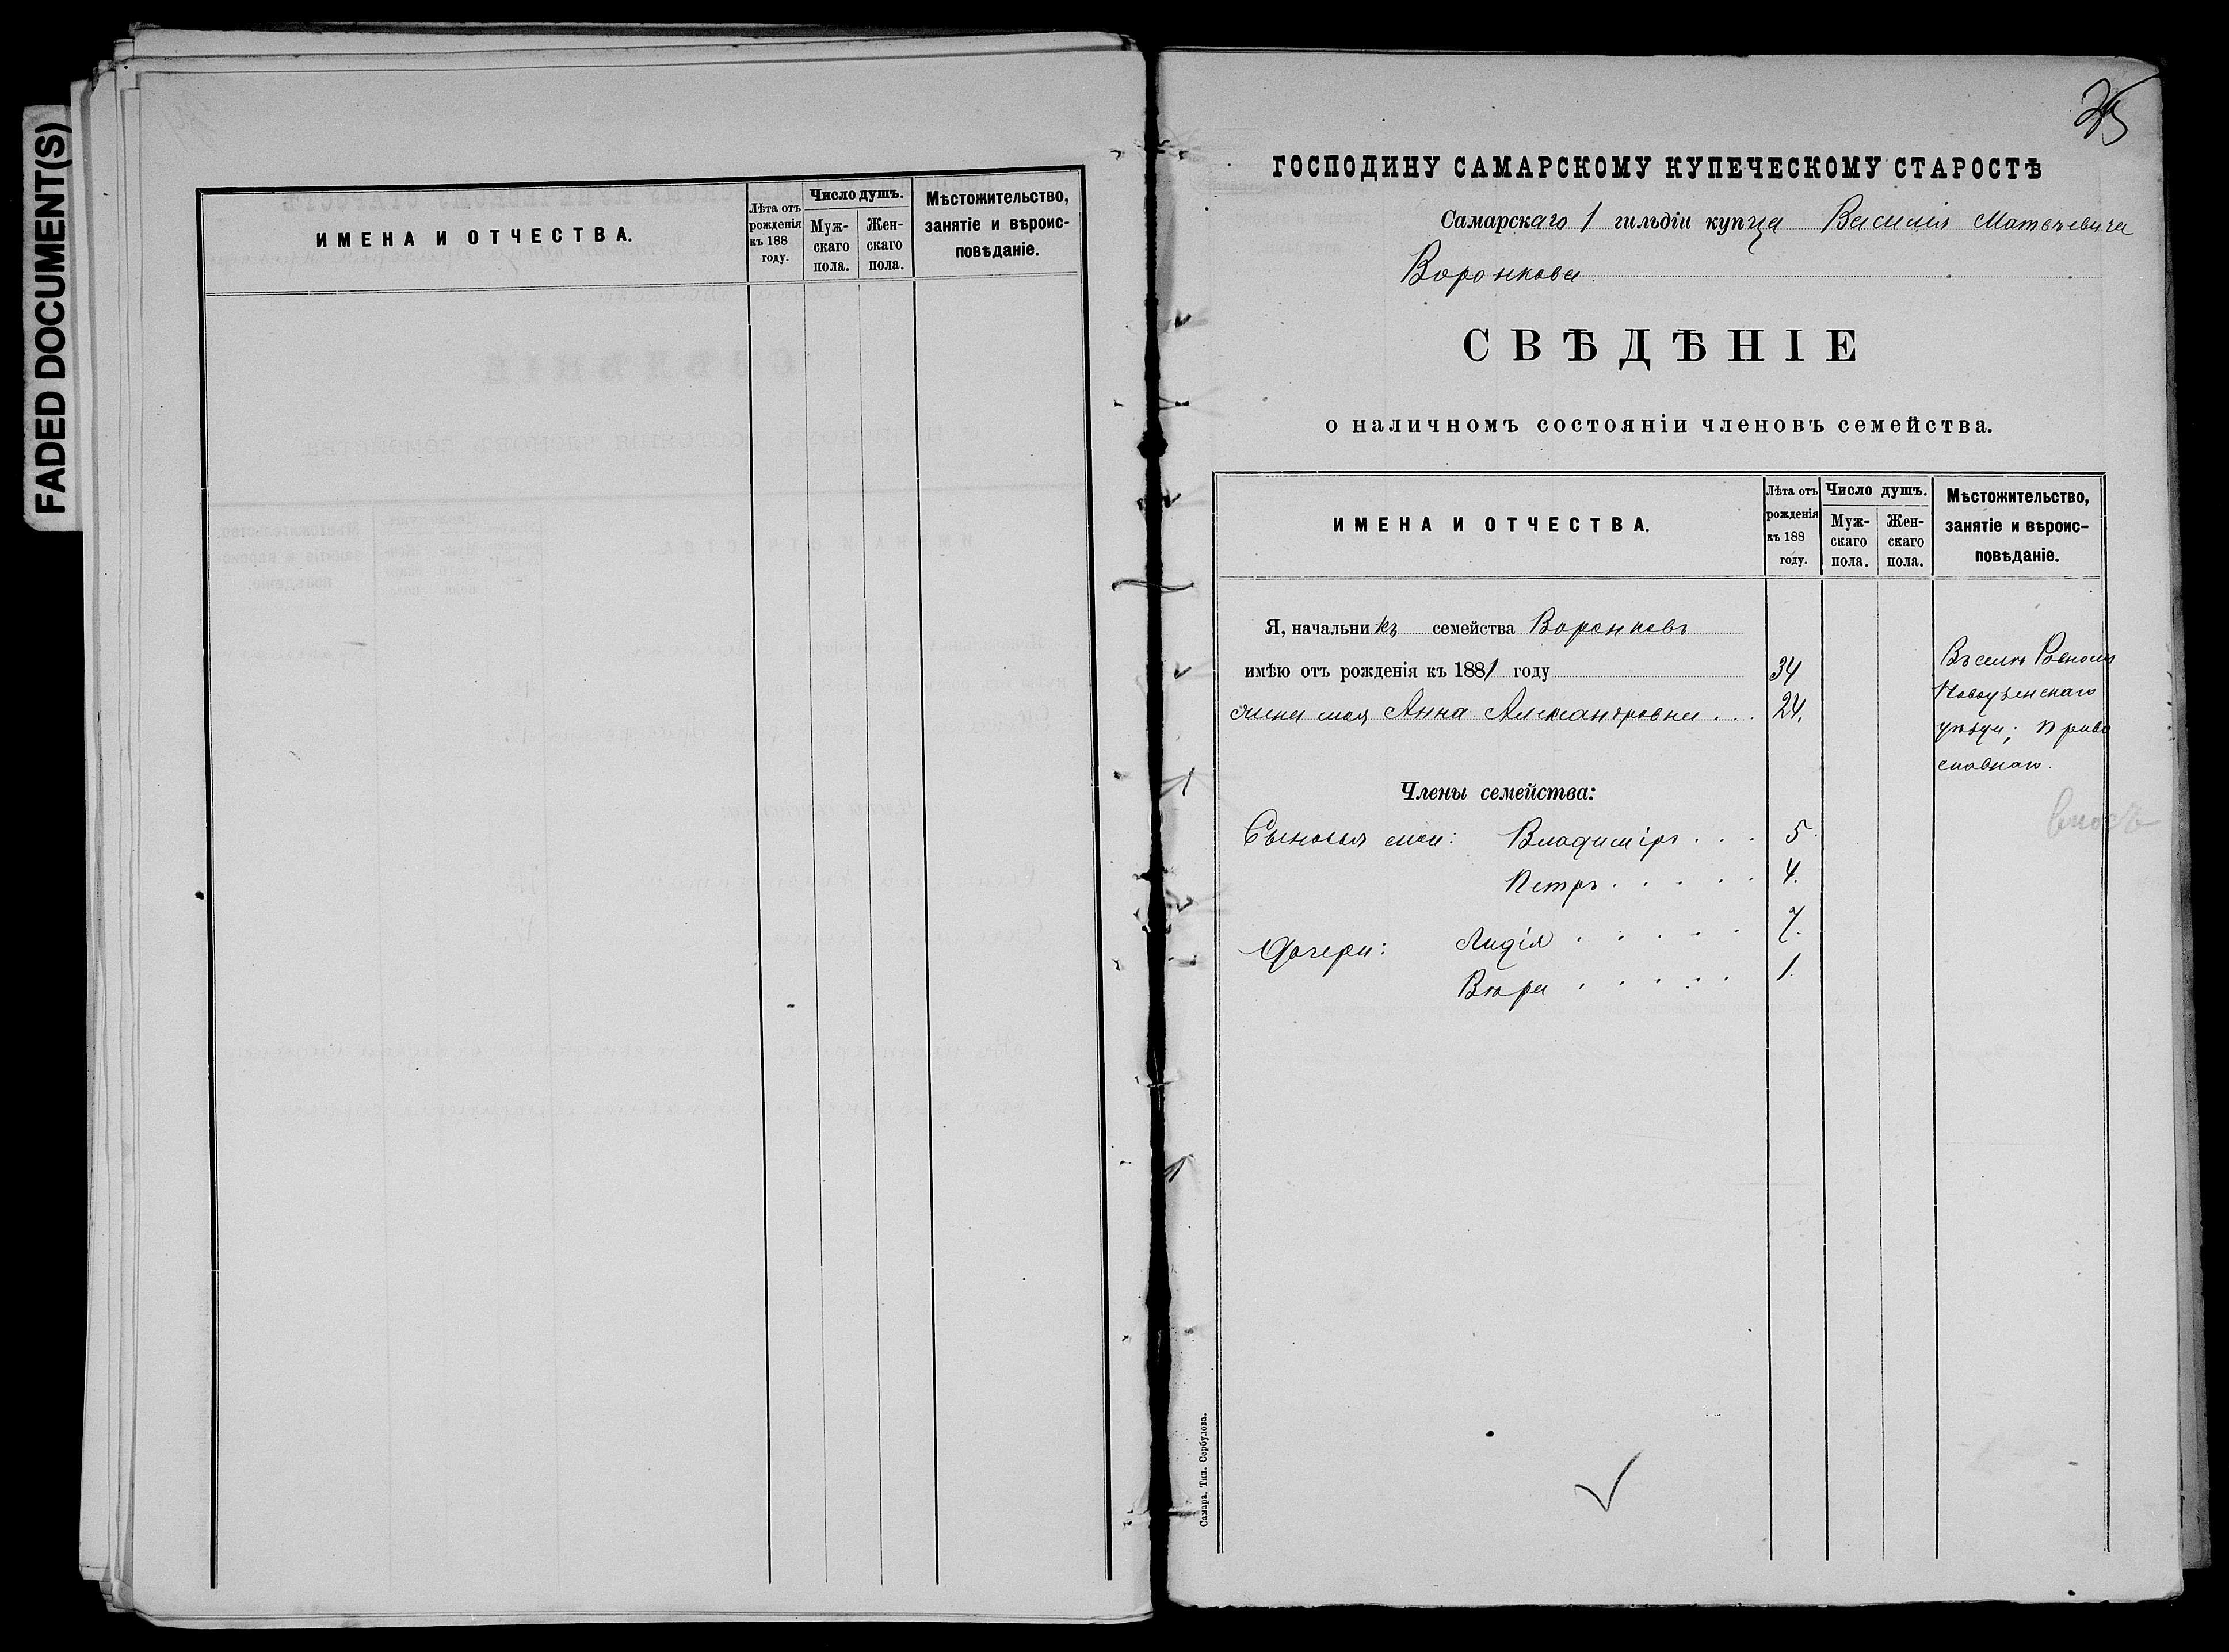 FADED DOCUMENT(S)
ИМЕНА И ОТЧЕСТВА.
Лѣта отъ рожденія къ 188 году.
Число душъ.
Муж-скаго пола.
Жен-скаго пола.
Мѣстожительство, занятіе и вѣроис-повѣданіе.
ГОСПОДИНУ САМАРСКОМУ КУПЕЧЕСКОМУ СТАРОСТѢ
Самарскаго 1 гильдіи купца Василія Матвѣевича
Воронкова
СВѢДѢНІЕ
о наличномъ состояніи членовъ семейства.
ИМЕНА И ОТЧЕСТВА.
Лѣта отъ рожденія къ 188 году.
Число душъ.
Муж-скаго пола.
Жен-скаго пола.
Мѣстожительство, занятіе и вѣроис-повѣданіе.
Я, начальникъ семейства Воронковъ
имѣю отъ рожденія къ 1881 году 34
жена моя Анна Александровна . . 24.
Въ селѣ Ровномъ
Новоузенскаго
уѣзда; право
славнаго.
Члены семейства:
Сыновья мои: Владиміръ . . . 5
Петръ . . . . . 4.
Дочери: Лидія . . . . . 7.
Вѣра . . . . . 1.
Самара. Тип. Сербулова.